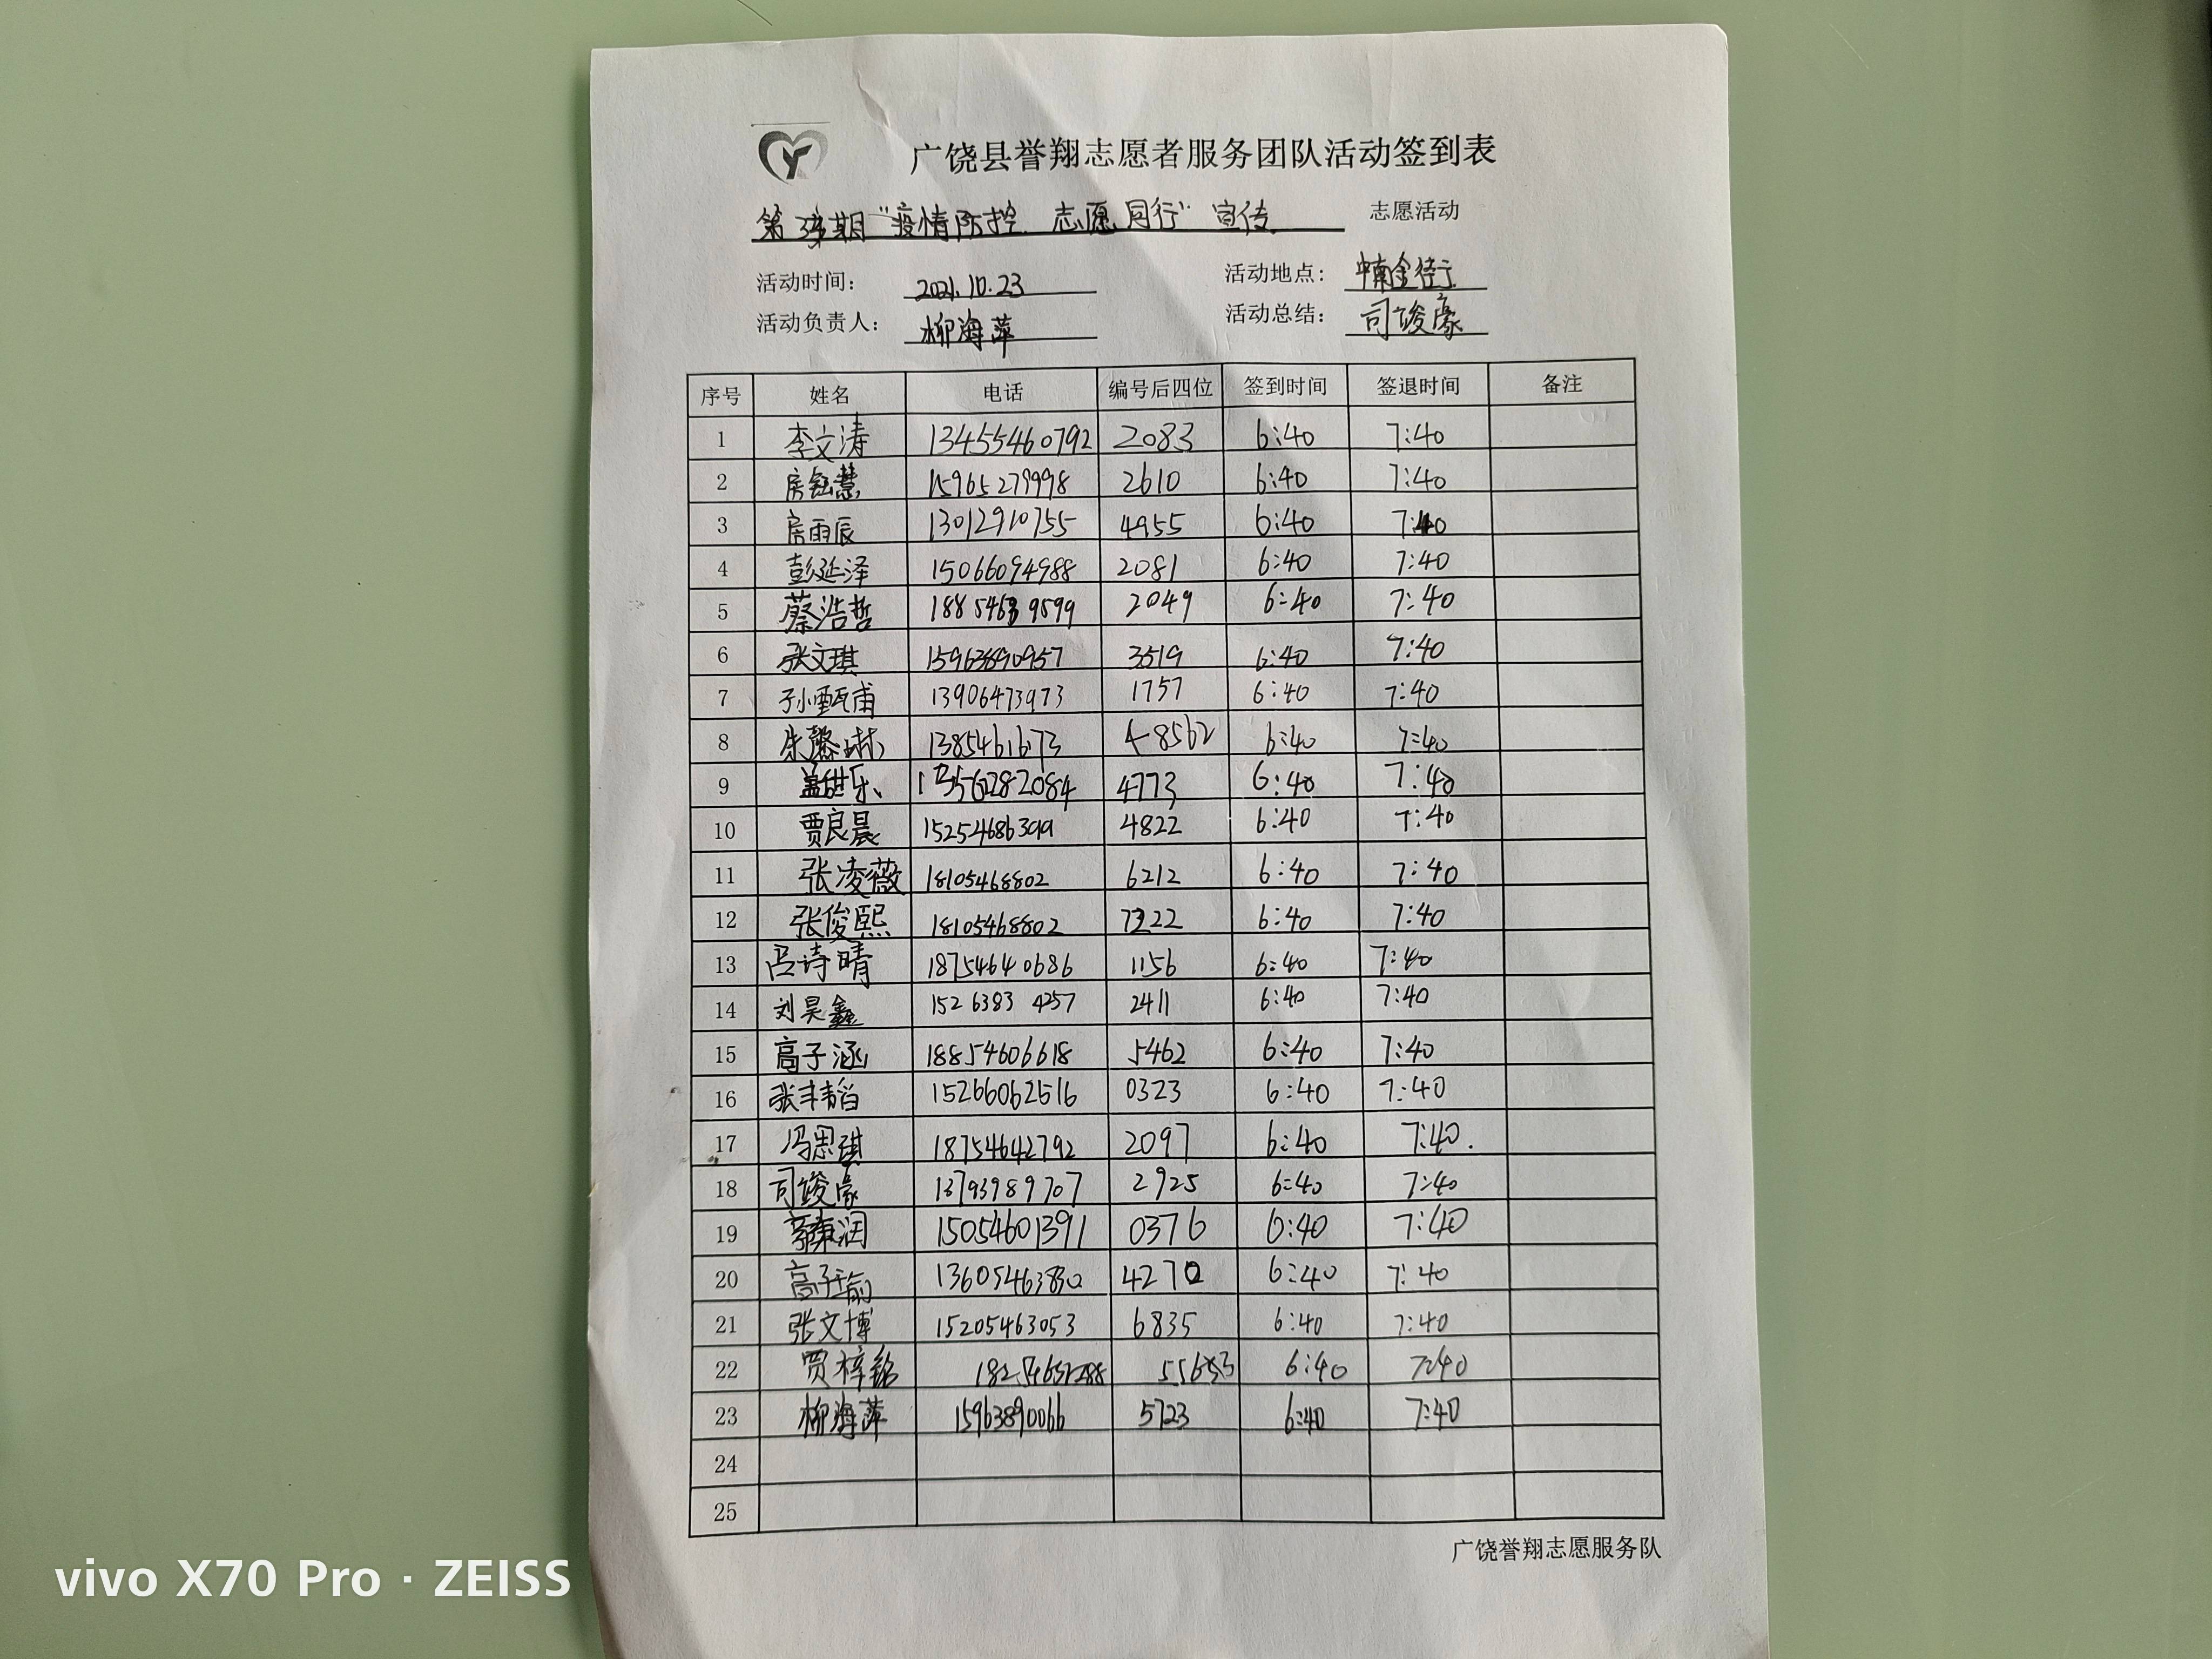 广饶县誉翔志愿者服务团队活动签到表
第 期"疫情防控、志愿同行"宣传 志愿活动
活动时间: 2021.10.23 活动地点: 中南金街
活动负责人: 柳海萍 活动总结: 司竣豪
序号 姓名 电话 编号后四位 签到时间 签退时间 备注
1 李文涛 13455460792 2083 6:40 7:40
2 房钰慧 15965279998 2610 6:40 7:40
3 房雨辰 13012910755 4955 6:40 7:40
4 彭延泽 15066094988 2081 6:40 7:40
5 蔡浩哲 18854639599 2049 6:40 7:40
6 张文琪 15963890957 3519 6:40 7:40
7 孙甄甫 13906473973 1757 6:40 7:40
8 朱馨琳 13854616173 8562 6:40 7:40
9 盖世乐 4773 6:40 7:40
10 贾良晨 15254686399 4822 6:40 7:40
11 张凌薇 18105468802 6212 6:40 7:40
12 张俊熙 18105468802 6:40 7:40
13 吕诗晴 18754640686 1156 6:40 7:40
14 刘昊鑫 152 6383 4257 2411 6:40 7:40
15 高子涵 18854606618 5462 6:40 7:40
16 张丰韬 15266062516 0323 6:40 7:40
17 冯思琪 18754642792 2097 6:40 7:40.
18 司竣豪 13793989707 2925 6:40 7:40
19 润 15054601391 0376 6:40 7:40
20 高子瑜 13605463830 4270 6:40 7:40
21 张文博 15205463053 6835 6:40 7:40
22 贾梓铭 6:40 7:40
23 柳海萍 15963890066 5723 6:40 7:40
24
25
广饶誉翔志愿服务队
vivo X70 Pro · ZEISS